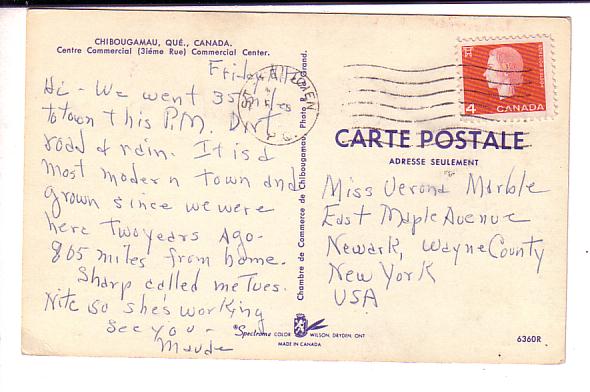 CHIBOUGAMAU, QUÉ., CANADA.
Centre Commercial (3ième Rue) Commercial Center.
Friday
Hi - We went 35 miles
to town this P.M. Dirt
road & rain. It is a
most modern town and
grown since we were
here two years ago -
805 miles from home.
Sharp called me Tues.
Nite so she's working
See you -
Maude
Chambre de Commerce de Chibougamau. Photo R. Grand.
4
CANADA
POSTES POSTAGE
CARTE POSTALE
ADRESSE SEULEMENT
Miss Verona Marble
East Maple Avenue
Newark, Wayne County
New York
USA
Spectrome COLOR WILSON, DRYDEN, ONT
MADE IN CANADA
6360R